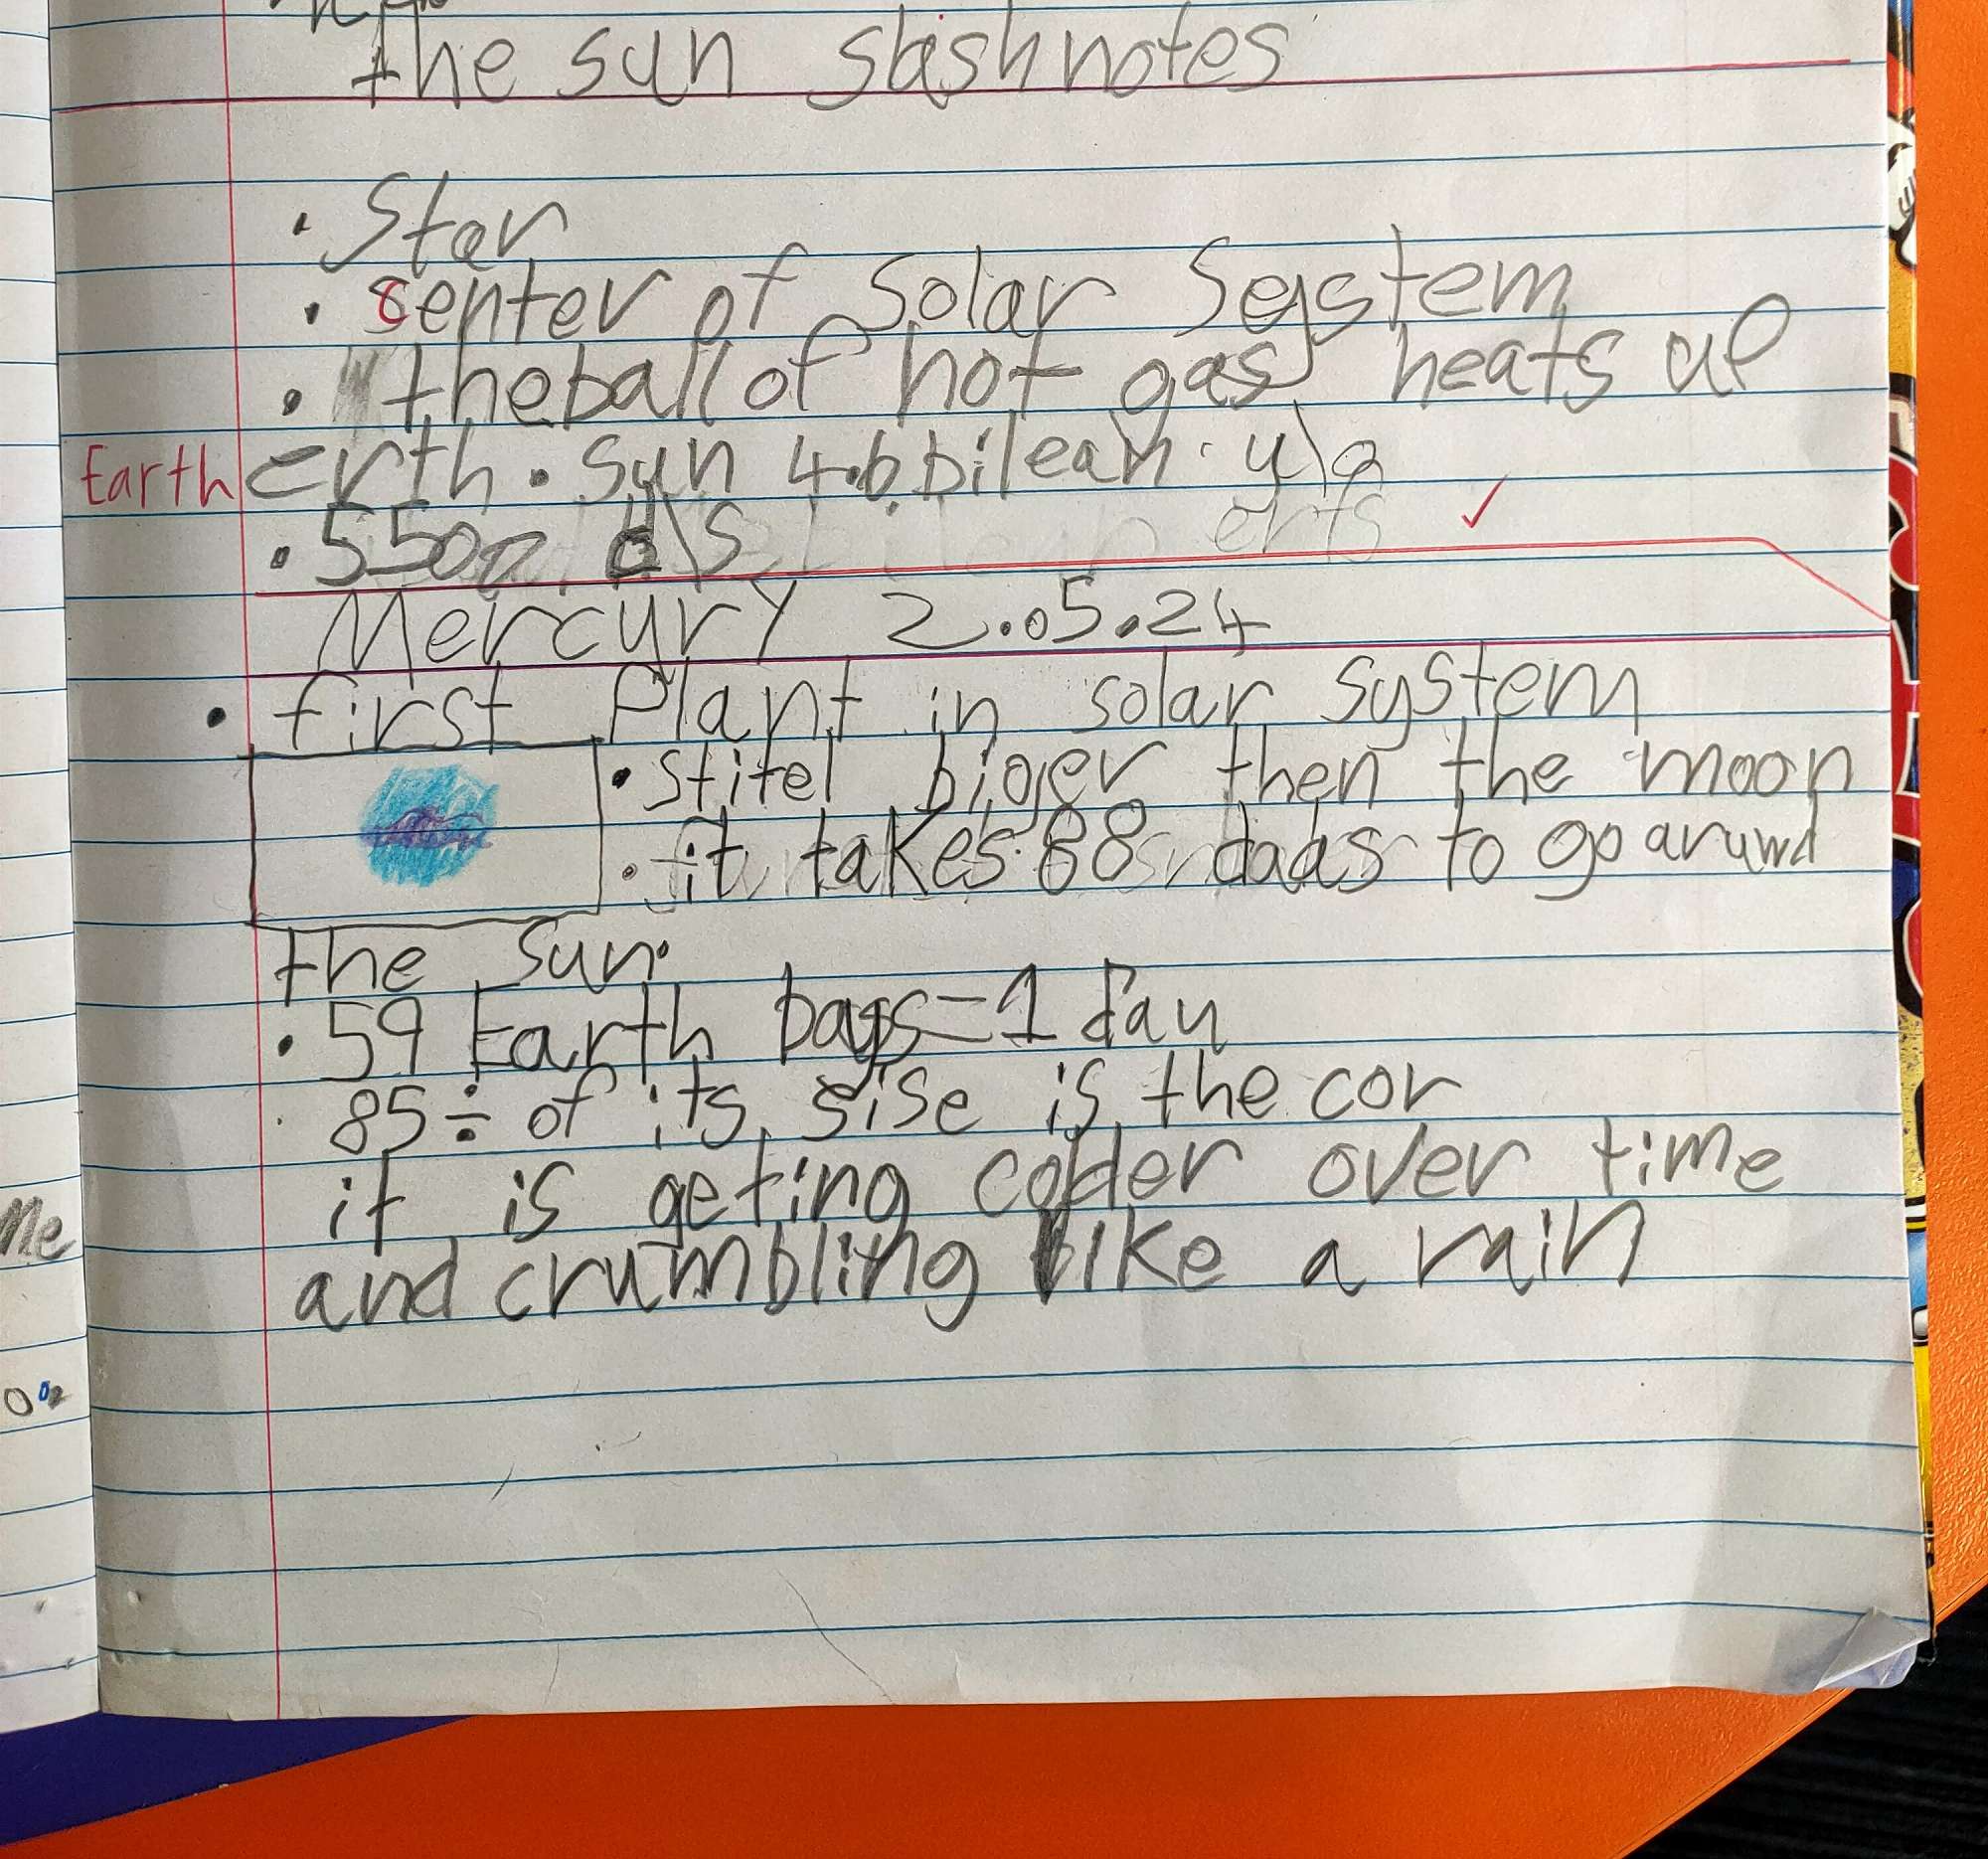 the sun slashnotes
• Star
• center of Solar Seystem
• the ball of hot gas heats up
Earth erth • sun 4.6 bilean y\o
• 5500 d\s ✓
Mercury 2.05.24
• first Plant in solar system
• stitel biger then the moon
• it takes 88 dads to go aruwd
the sun•
• 59 Earth bays=1 day
• 85÷ of its sise is the cor
it is geting colder over time
and crumbling like a rain
Me